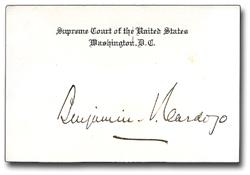 Supreme Court of the United States
Washington, D.C.
Benjamin N. Cardozo